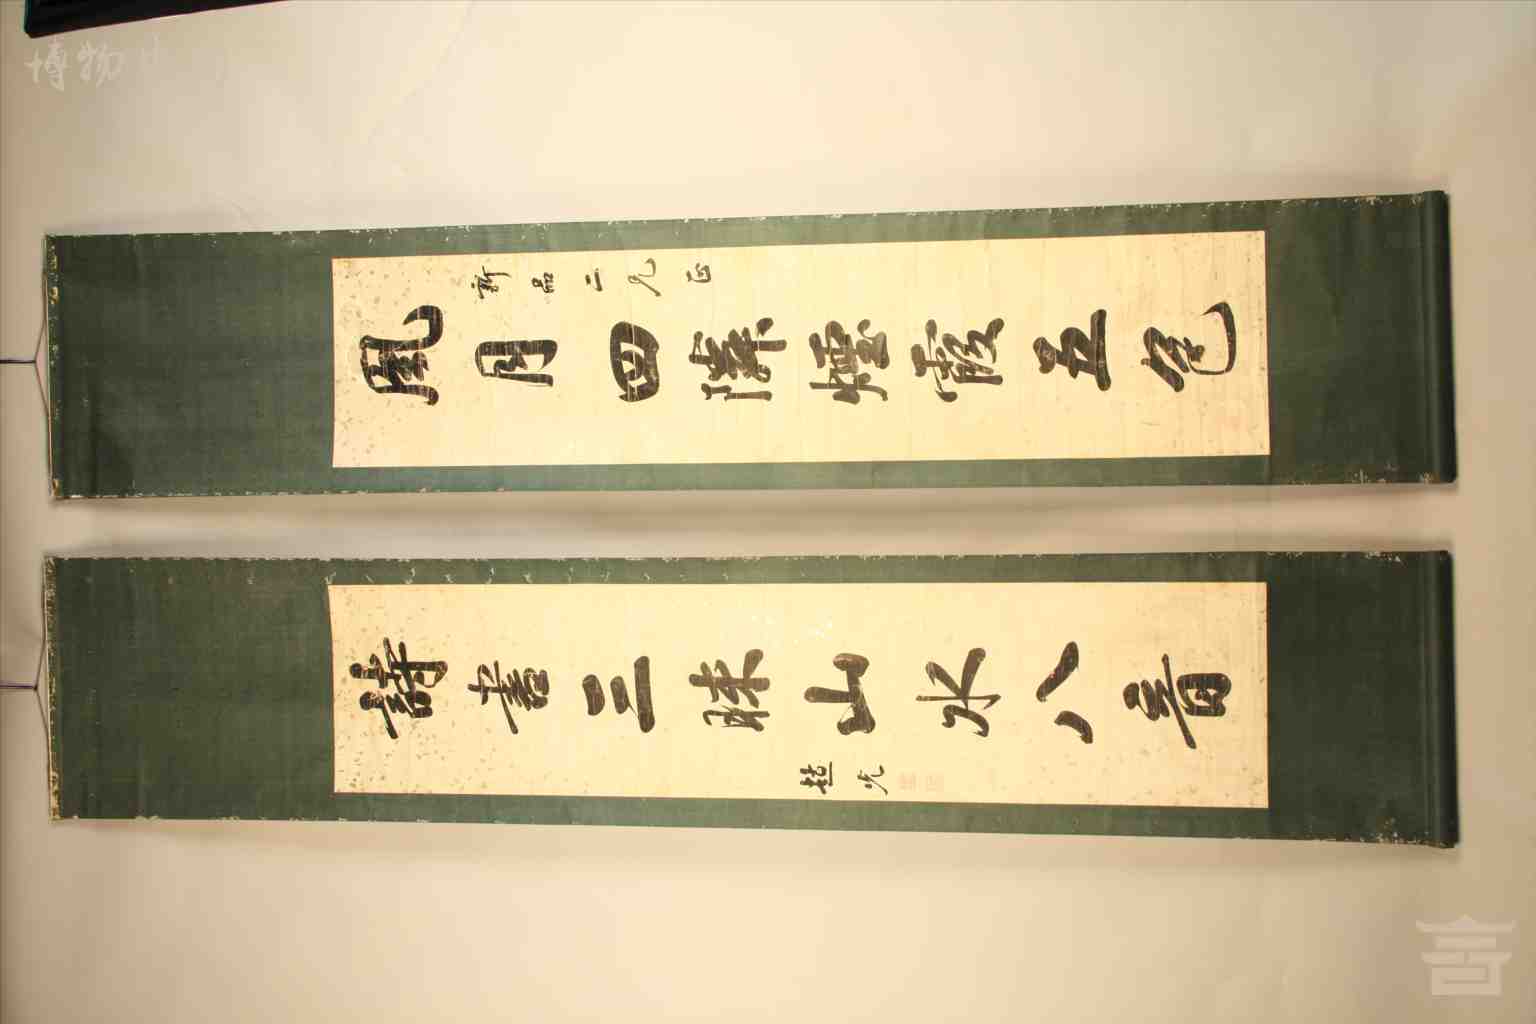 博物
風月四隣煙霞五色
品二兄正
詩書三味山水八音
趙光